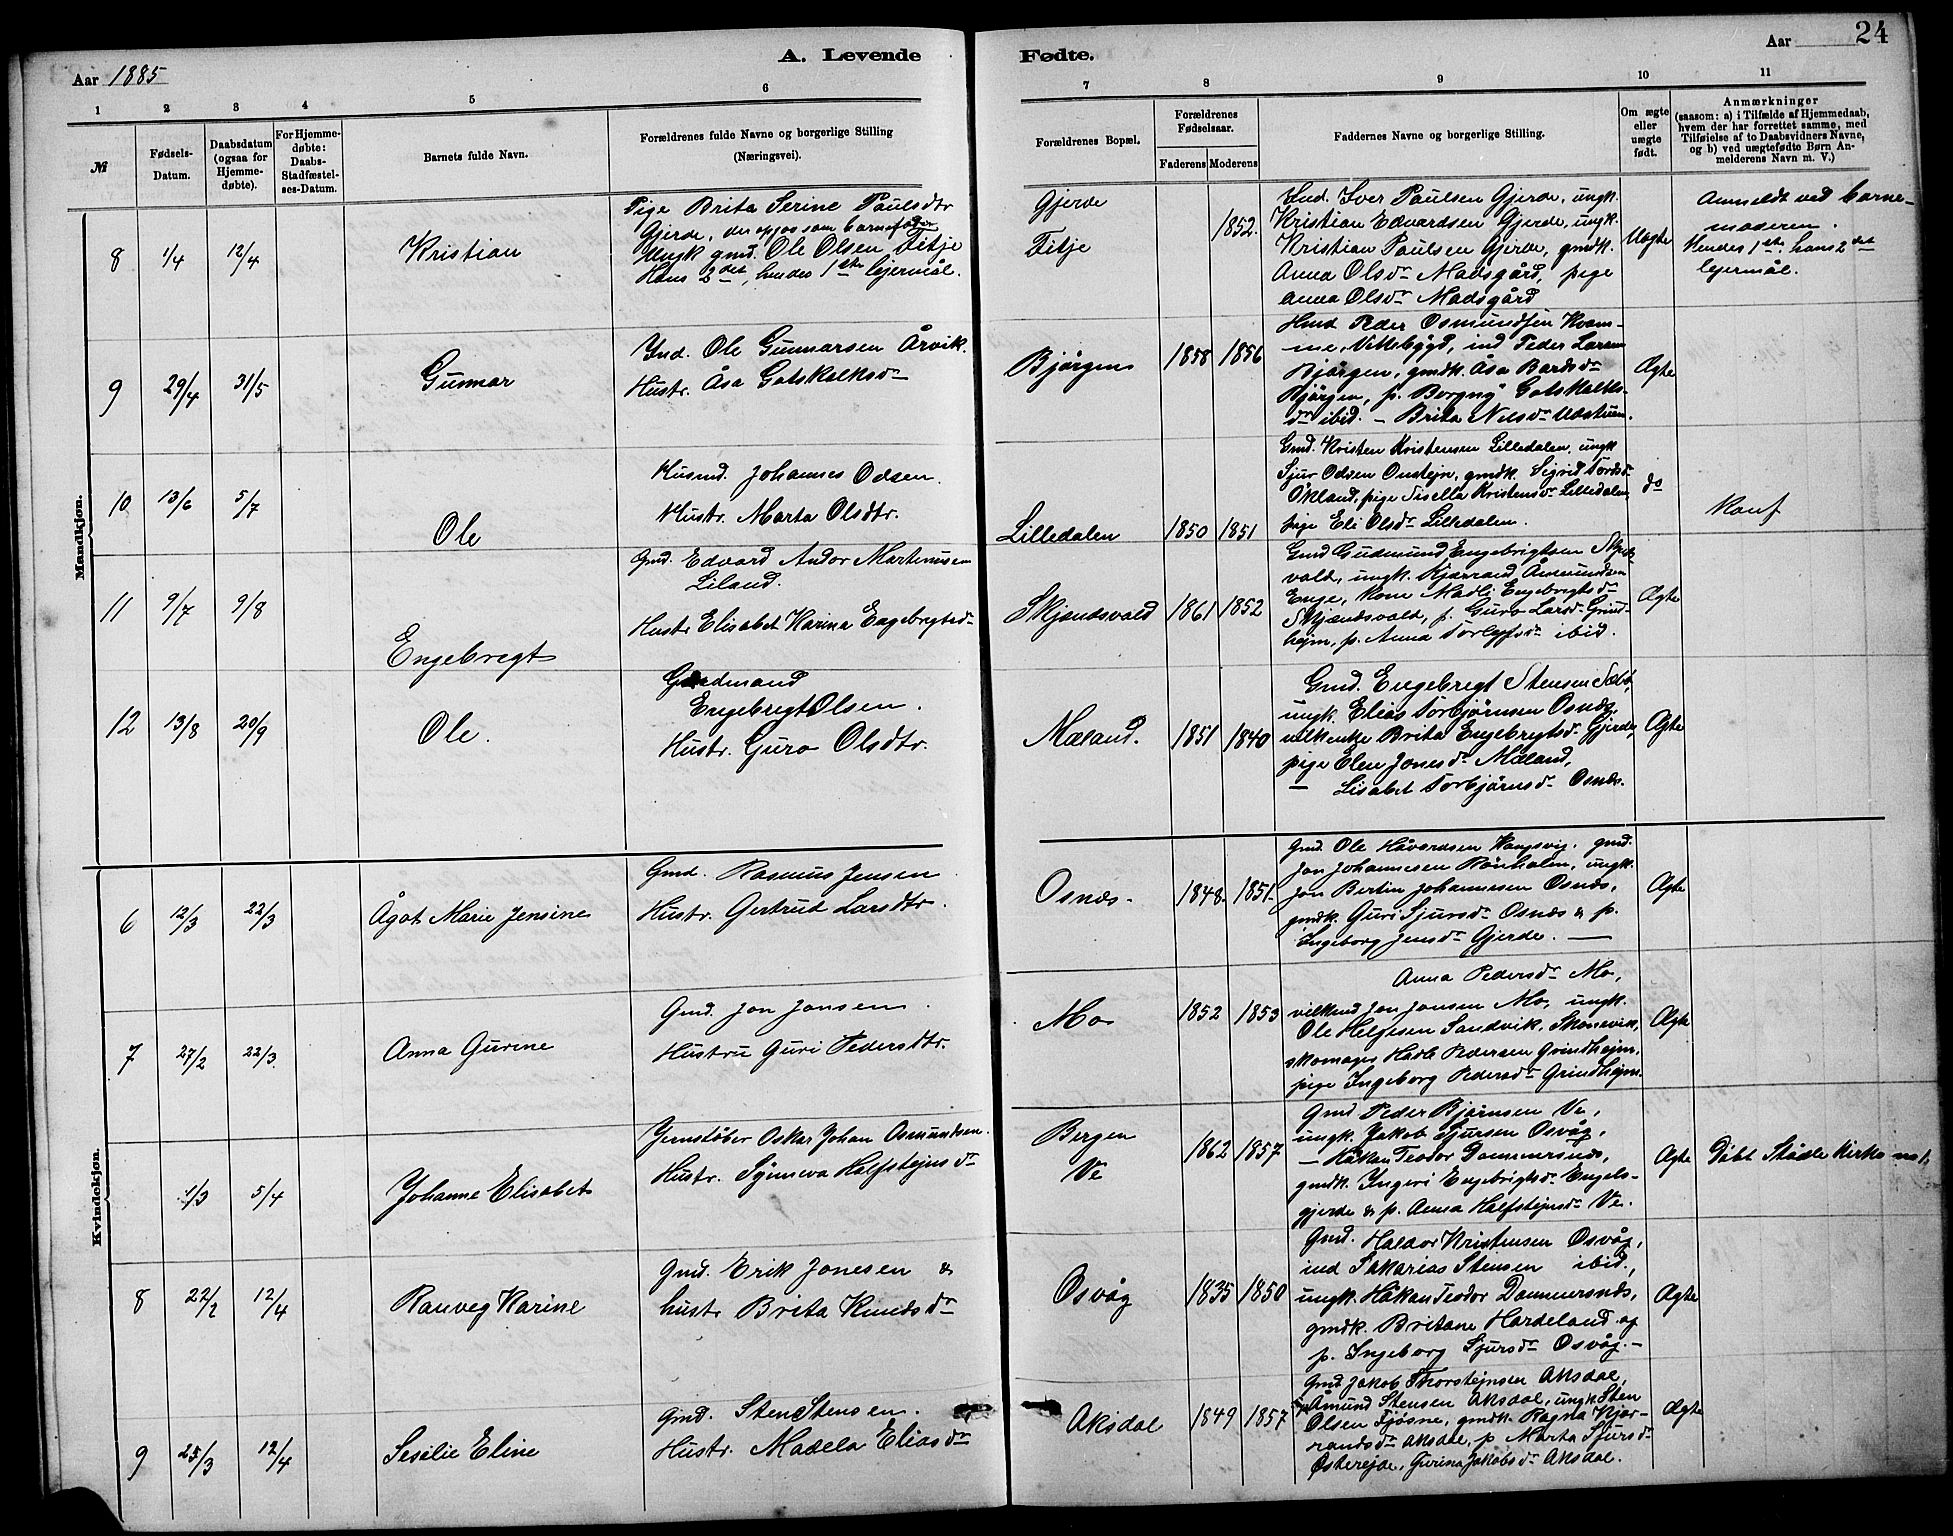 24
A. Levende Fødte.
Aar 1885
Aar
1 2 3 4 5 6 7 8 9 10 11
№
Fødsels-
Datum.
Daabsdatum
(ogsaa for
Hjemme-
døbte).
For Hjemme-
døbte:
Daabs-
Stadfæstel-
ses-Datum.
Barnets fulde Navn.
Forældrenes fulde Navne og borgerlige Stilling
(Næringsvei).
Forældrenes Bopæl.
Forældrenes
Fødselsaar.
Faderens Moderens
Faddernes Navne og borgerlige Stilling.
Om ægte
eller
uægte
født.
Anmærkninger
(saasom: a) i Tilfælde af Hjemmedaab,
hvem der har forrettet samme, med
Tilføielse af to Daabsvidners Navne,
og b) ved uægtefødte Børn An-
melderens Navn m. V.)
Mandkjøn.
8
1/4
12/4
Kristian
Pige Brita Serine Paulsdtr
Gjerde, der opgos som barnefader
Ungk gmd. Ole Olsen Fitje
Hans 2det, hendes 1ste lejermål.
Gjerde
Fitje
1852.
Ind. Iver Paulsen Gjerde, ungk.
Kristian Edvardsen Gjerde, ungk.
Kristian Paulsen Gjerde, gmdk.
Anna Olsdr Madsgård, pige
Anna Olsdr Madsgård
Uægte
Anmeldt ved barne-
moderen.
Hendes 1ste, hans 2det
lejermål.
9
29/4
31/5
Gunnar
Ind. Ole Gunnarsen Årvik.
Hustr. Åsa Gotskalksdr
Bjørgen
1858 1856
Hmd Peder Osmundsen Kvam-
me, Vittebygd, ind Peder Larsen
Bjørgen, gmdk. Åsa Bardsdr
Bjørgen, p. Borgny Gotskalks-
dr ibid. - Brita Nilsdr
Ægte
10
13/6
5/7
Ole
Husmd. Johannes Odsen.
Hustr. Marta Olsdtr.
Lilledalen
1850 1851
Gmd. Kristen Kristensen Lilledalen, ungk
Sjur Odsen Onstejn, gmdk. Sigrid Tordsdr
Økland, pige Sisella Kristensdr Lilledalen,
pige Eli Olsdr Lilledalen.
do
Konf
11
9/7
9/8
Engebregt
Gmd. Edvard Andor Martinusen
Liland.
Hustr Elisabet Karina Engebrigtsdr
Skjændsvald
1861 1852
Gmd Gudmund Engebrigtsen Skjænds-
vald, ungk. Kjærrand Åmundsen
Enge, kone Madli Engebregtsdr
Skjændsvald, p. Guro Larsdr Grind-
hejm, p. Anna Torlejfsdr ibid.
Ægte
12
13/8
20/9
Ole.
Gaardmand
Engebregt Olsen.
Hustr. Guro Olsdtr.
Mæland.
1851 1840
Gmd. Engebregt Stensen Sæbø,
ungk. Elias Torbjørnsen Osnæs,
Brita Engebregtsdr Gjerde,
pige Elen Jonesdr Mæland,
— Lisabet Torbjørnsdr Osnæs.
Ægte
Kvindekjøn.
6
12/3
22/3
Ågot Marie Jensine
Gmd. Rasmus Jensen
Hustr. Gertrud Larsdtr.
Osnæs.
1848. 1851.
Gmd. Ole Håvardsen Vangsvig, gmd.
Jon Johannesen Rønholm, ungk.
Jon Bertin Johannesen Osnæs,
gmdk. Guri Sjursdr Osnæs & p.
Ingeborg Jensdr Gjerde. —
Ægte
7
27/2
22/3.
Anna Gurine
Gmd. Jon Jonsen.
Hustru Guri Pedersdtr.
Mo
1852 1853
Anna Pedersdr Mo,
vilkmd Jon Jonsen Mo, ungk.
Ole Helgesen Sandvik, Skonevik,
skomager Hadle Pedersen Grindhejm,
pige Ingeborg Pedersdr Grindhejm.
Ægte
1/3
5/4
Johanne Elisabet
Jernstøber Oskar Johan Osmundsen.
Hustr. Synneva Halfstejnsdr
Bergen
Ve
1862 1857
Gmd Peder Bjørnsen Ve,
ungk. Jakob Sjursen Osvåg,
— Håkan Teodor Dommersnæs,
gmdk. Ingeri Engebrigtsdr Engels-
gjerde & p. Anna Halfstejnsdr Ve.
Ægte
Døbt Stødle kirke
8
22/2
12/4
Ranveg Karine
Gmd. Erik Jonesen &
hustr Brita Knudsdr
Osvåg
1835 1850
Gmd. Haldor Kristensen Osvåg,
ind Sakarias Stensen ibid.,
ungk. Håkan Teodor Dommersnæs,
gmdk. Britane Hardeland og
p. Ingeborg Sjursdr Osvåg. -
Ægte
9
25/3
12/4
Seselie Eline
Gmd. Sten Stensen.
Hustr. Madela Eliasdr
Aksdal
1849 1857
Gmd Jakob Thorstejnsen Aksdal,
Åmund Stensen Aksdal, ungk Sten
Olsen Tjøsne, gmdk. Ragna Kjær-
randsdr Aksdal, p Marta Sjursdr
Østerejde, Gurina Jakobsdr Aksdal.
Ægte